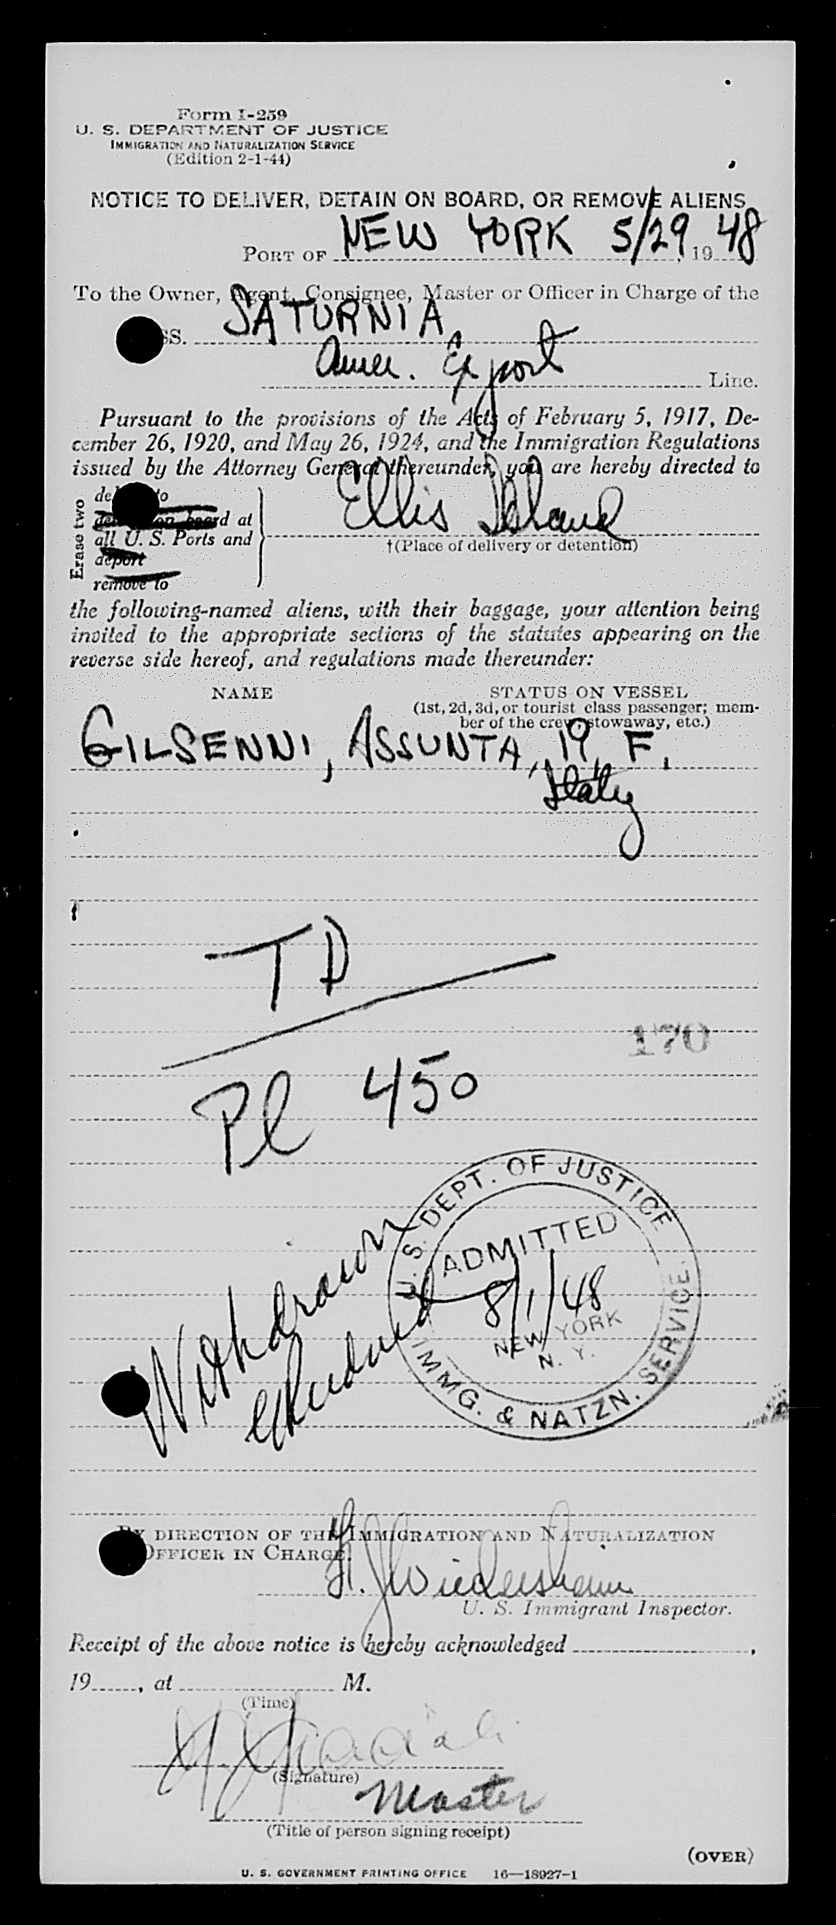 Form I-259
U. S. DEPARTMENT OF JUSTICE
IMMIGRATION AND NATURALIZATION SERVICE
(Edition 2-1-44)
NOTICE TO DELIVER, DETAIN ON BOARD, OR REMOVE ALIENS
PORT OF NEW YORK 5/29, 1948
To the Owner, Agent, Consignee, Master or Officer in Charge of the
SS. SATURNIA
Amer. Export Line.
Pursuant to the provisions of the Acts of February 5, 1917, De-
cember 26, 1920, and May 26, 1924, and the Immigration Regulations
issued by the Attorney General thereunder, you are hereby directed to
Erase two
to
board at
all U. S. Ports and
deport
remove to
Ellis Island
†(Place of delivery or detention)
the following-named aliens, with their baggage, your attention being
invited to the appropriate sections of the statutes appearing on the
reverse side hereof, and regulations made thereunder:
NAME STATUS ON VESSEL
(1st, 2d, 3d, or tourist class passenger; mem-
ber of the crew, stowaway, etc.)
GILSENNI, ASSUNTA, 19, F,
Italy
TD
170
Pl 450
U. S. DEPT. OF JUSTICE
ADMITTED
8/1/48
NEW YORK
N. Y.
IMMG. & NATZN. SERVICE.
Withdrawn
BY DIRECTION OF THE IMMIGRATION AND NATURALIZATION
OFFICER IN CHARGE.
U. S. Immigrant Inspector.
Receipt of the above notice is hereby acknowledged ,
19 , at M.
(Time)
(Signature)
Master
(Title of person signing receipt)
(OVER)
U. S. GOVERNMENT PRINTING OFFICE 16—18927-1